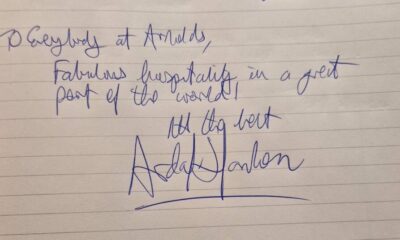 To Everybody at Arnolds,
Fabulous hospitality in a great
part of the world!
All the best
Ardal O'Hanlon